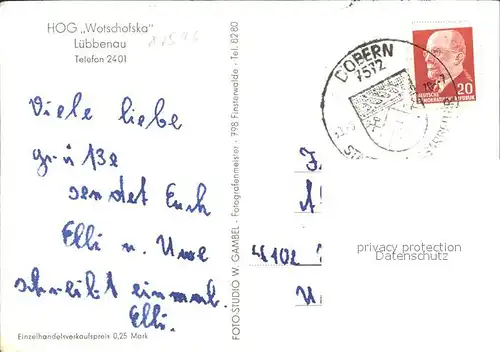 HOG „Wotschofska"
Lübbenau
Telefon 2401
Viele liebe
grüße
sendet Euch
Elli u. Uwe
schreibt einmal.
Elli.
Einzelhandelsverkaufspreis 0,25 Mark
FOTO-STUDIO W. GAMBEL · Fotografenmeister · 798 Finsterwalde · Tel. 82 80
DÖBERN
7572
DEUTSCHE
DEMOKRATISCHE REPUBLIK
20
privacy protection
Datenschutz